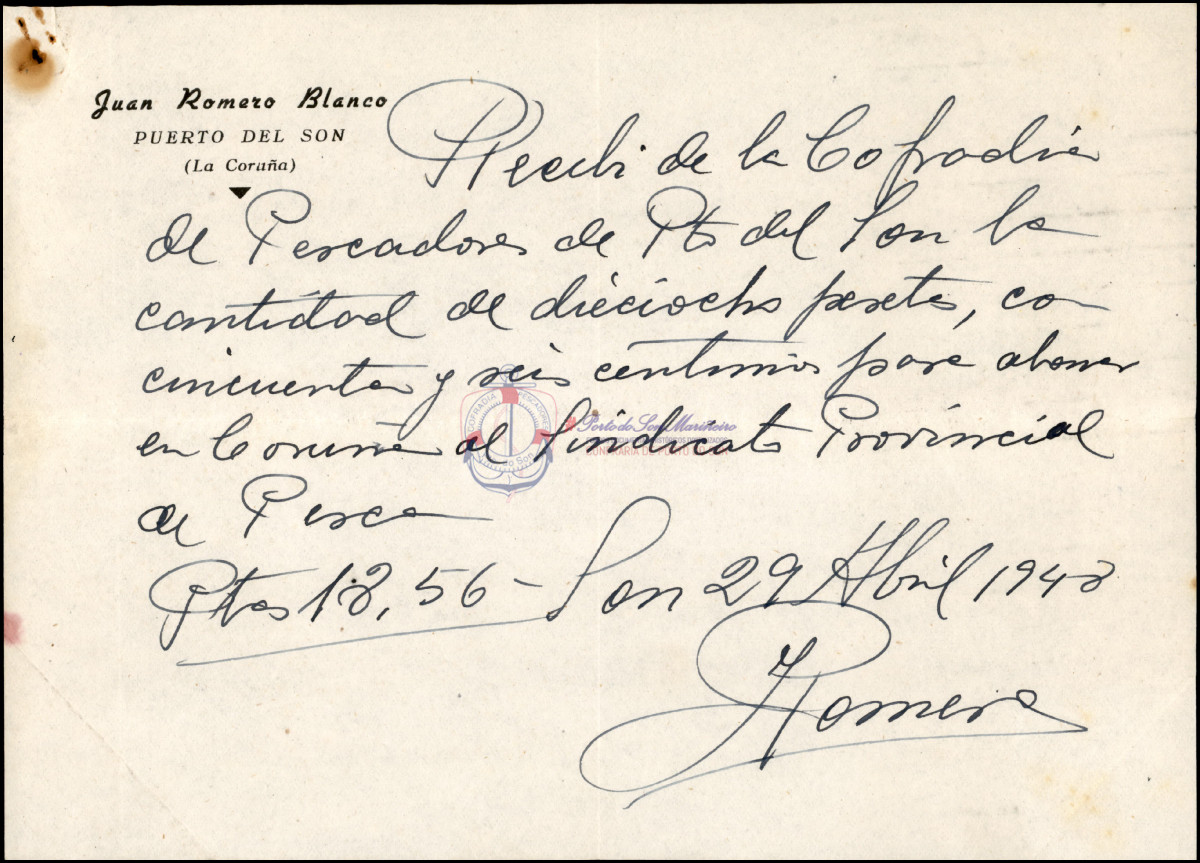 Juan Romero Blanco
PUERTO DEL SON
(La Coruña)
Recibi de la Cofradia
de Pescadores de Pto del Son la
cantidad de dieciocho pesetas, con
cincuenta y seis centimos para abonar
en Coruña al Sindicato Provincial
de Pesca
Ptas 18,56- Son 29 Abril 1948
Romero
COFRADIA PESCADORES
Porto do Son
Porto do Son Mariñeiro
CONFRARÍA DE PORTO DO SON